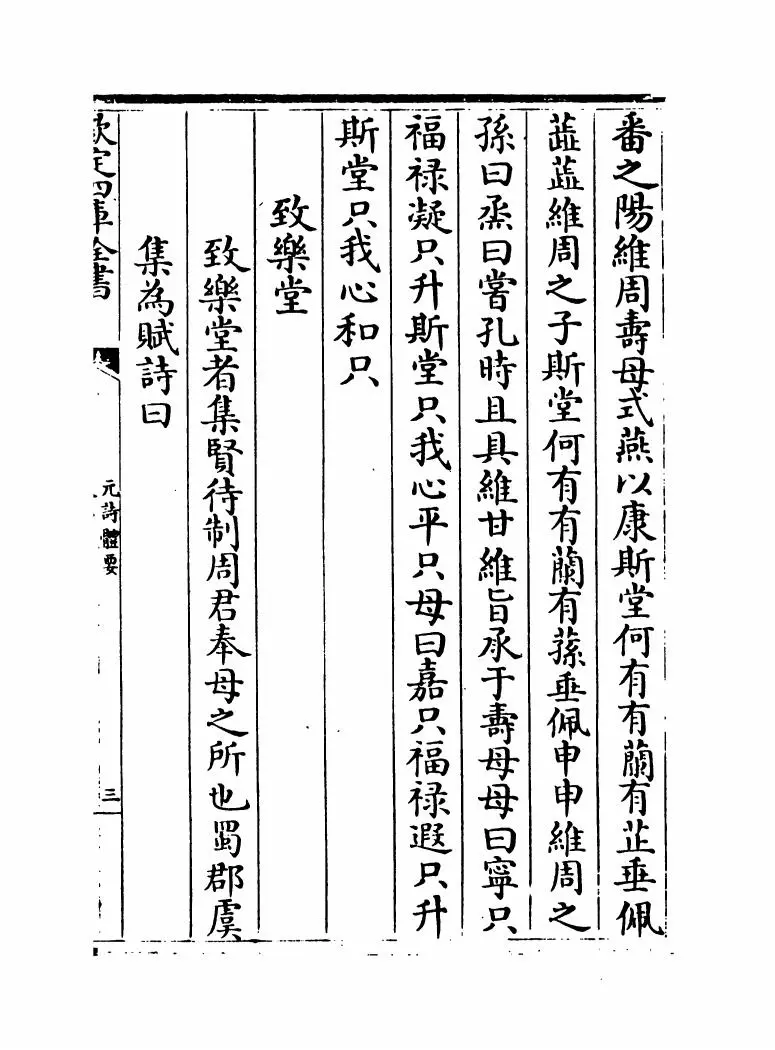 番之陽維周壽母式燕以康斯堂何有有蘭有芷垂佩
蕋蕋維周之子斯堂何有有蘭有蓀垂佩申申維周之
孫曰烝曰嘗孔時且具維甘維旨承于壽母母曰寧只
福禄凝只升斯堂只我心平只母曰嘉只福禄遐只升
斯堂只我心和只
致樂堂
致樂堂者集賢待制周君奉母之所也蜀郡虞
集為賦詩曰
欽定四庫全書
元詩體要
三